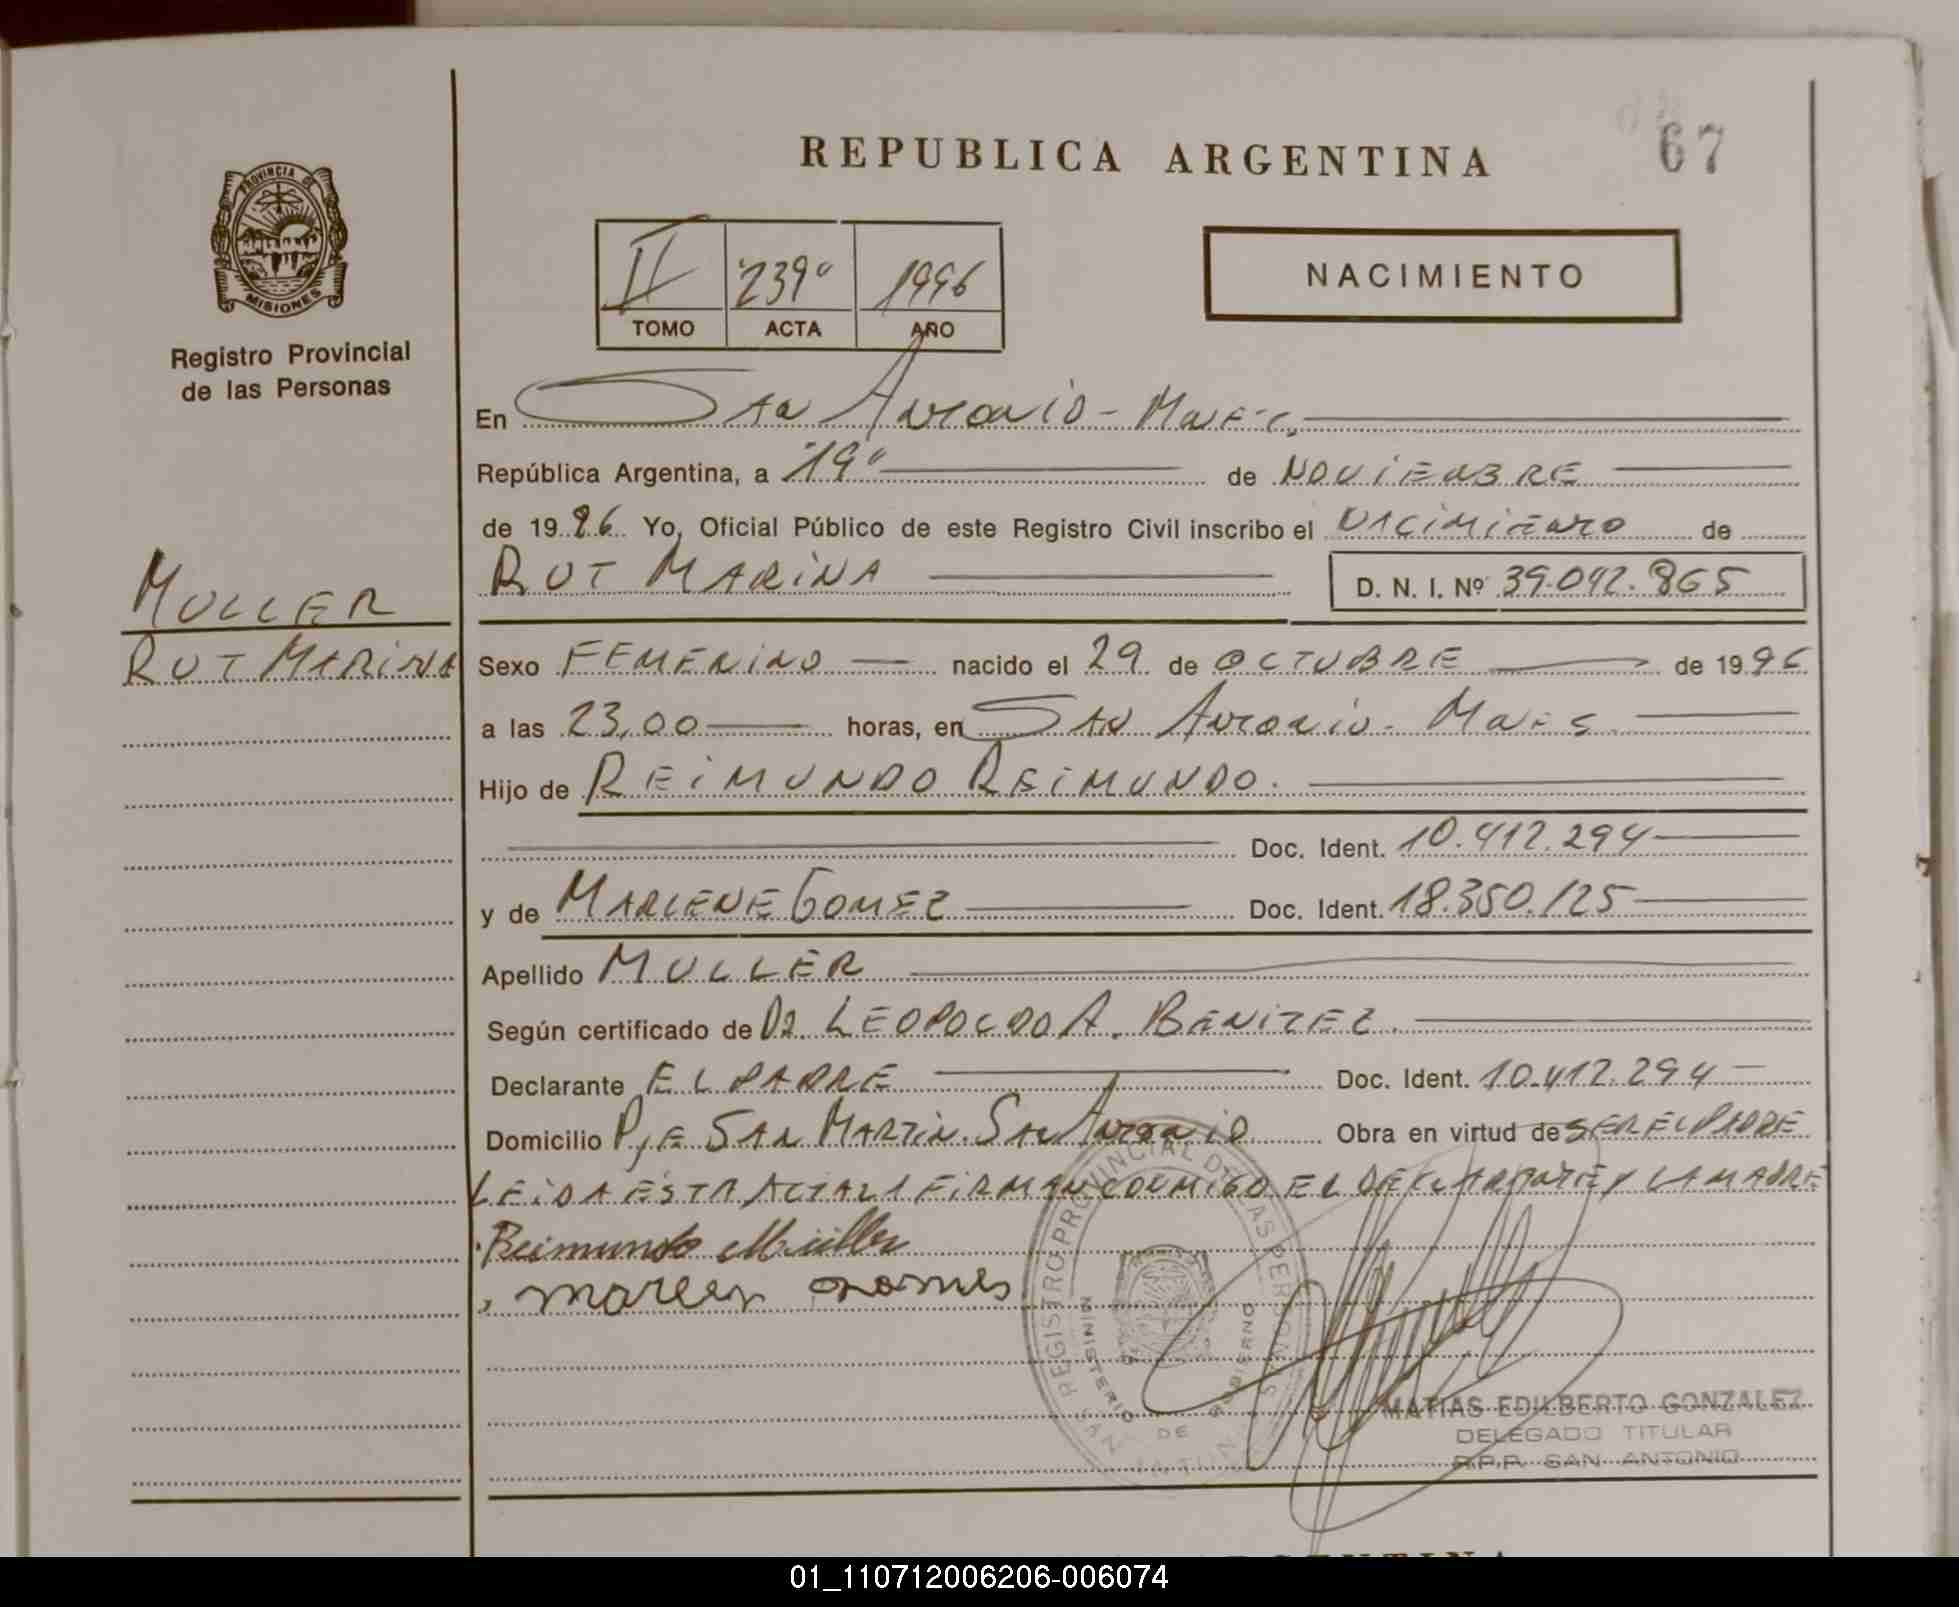 67
REPUBLICA ARGENTINA
PROVINCIA DE
MISIONES
Registro Provincial
de las Personas
II 239º 1996
TOMO ACTA AÑO
NACIMIENTO
En San Antonio - Mnes.
República Argentina, a 19º de NOVIEMBRE
de 1996. Yo, Oficial Público de este Registro Civil inscribo el NACIMIENTO de
RUT MARINA D. N. I. Nº 39.042.865
MULLER
RUT MARINA
Sexo FEMENINO nacido el 29 de OCTUBRE de 1996
a las 23,00 horas, en SAN ANTONIO - Mnes
Hijo de REIMUNDO REIMUNDO.
Doc. Ident. 10.412.294
y de MARLENE GOMEZ Doc. Ident. 18.350.125
Apellido MULLER
Según certificado de Dr. LEOPOLDO A. BENITEZ.
Declarante EL PADRE Doc. Ident. 10.412.294
Domicilio Pje SAN MARTIN. SAN ANTONIO Obra en virtud de SER EL PADRE
LEIDA ESTA ACTA LA FIRMAN CONMIGO EL DECLARANTE y LA MADRE
Reimundo Müller
REGISTRO PROVINCIAL DE LAS PERSONAS
MINISTERIO DE GOBIERNO
MATIAS EDILBERTO GONZALEZ
DELEGADO TITULAR
R.P.P. SAN ANTONIO
01_110712006206-006074